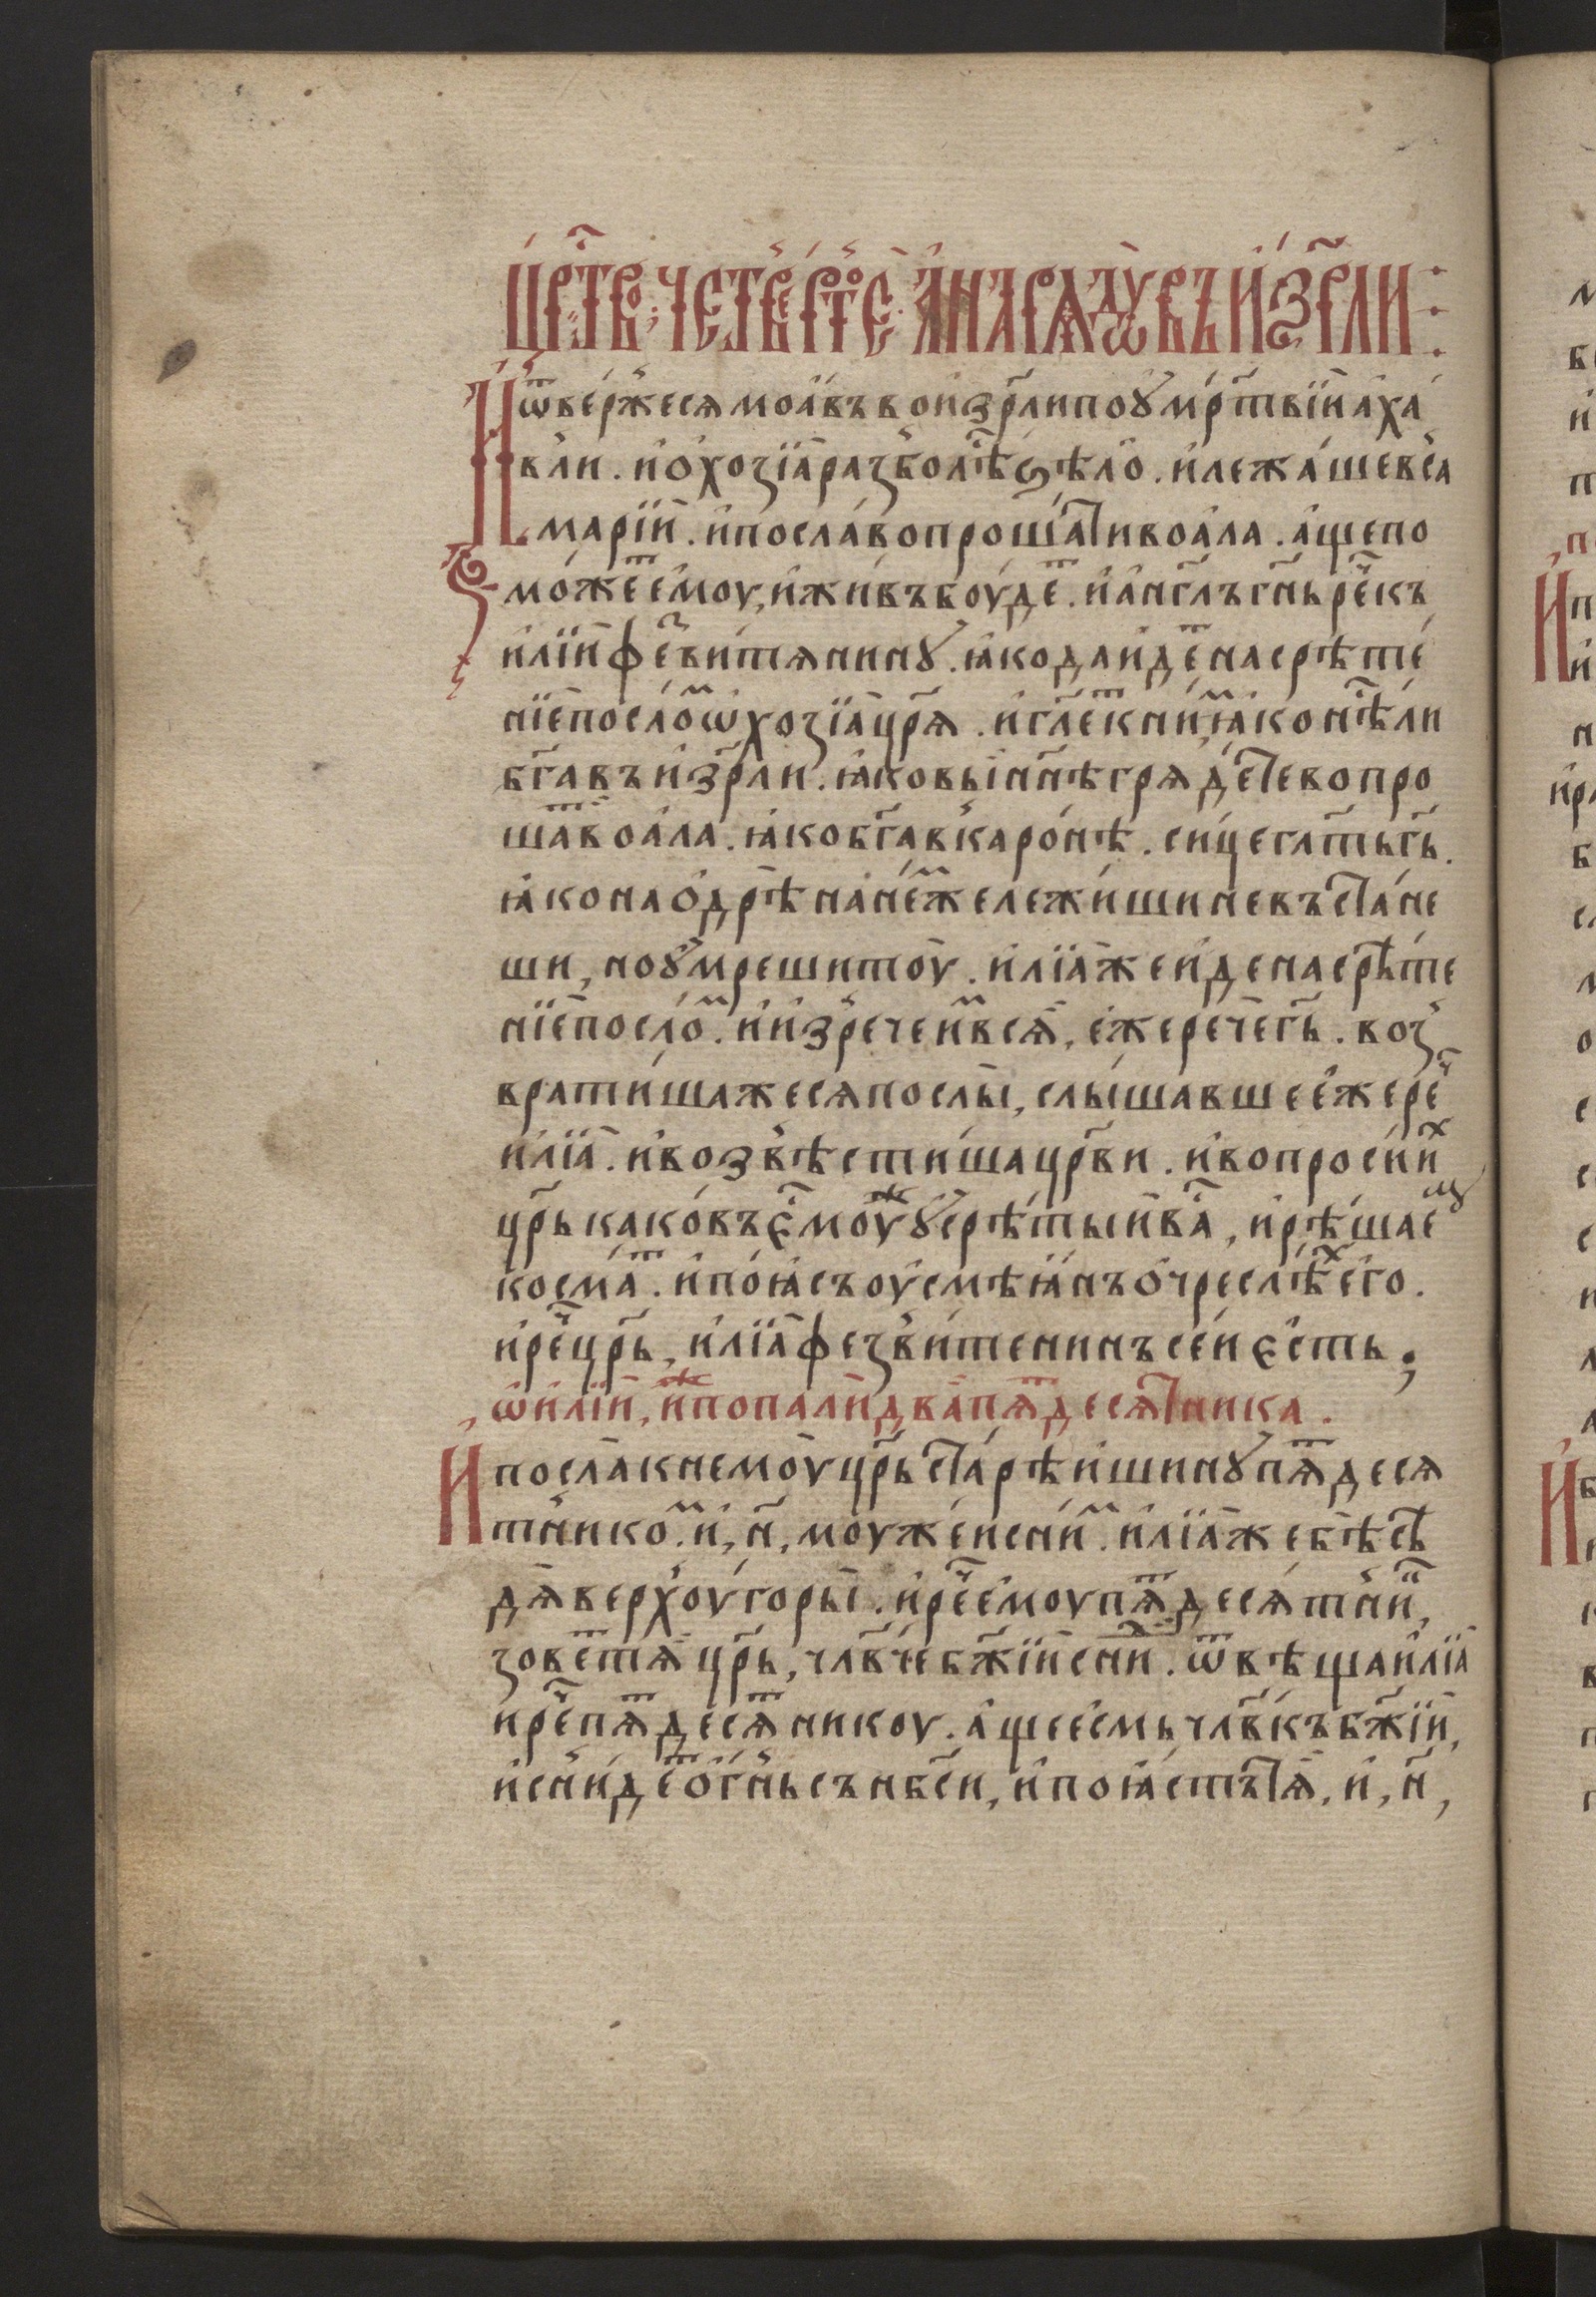 Цр҃тво четвертое. А на рядꙋ въ и҆зр҃ли
И ѿвержеся моавъ во и҆зр҃ли по ᲂумр҃твїи а҆ха
вли. и҆ ѻхозїа разболѣ ѕѣло. и҆ лежаше в са
марїи. и҆ посла вопрошати воала. а҆ще по
може ему, и҆ живъ буде. и҆ а҆нг҃лъ гн҃ь рече къ
и҆лїи фезвитянинꙋ. ꙗ҆ко да и҆де на срѣте
нїе посло ѡхозїа цр҃я. и҆ гл҃е к ни, ꙗ҆ко нѣ ли
бг҃а въ и҆зр҃ли. ꙗ҆ко вы нн҃ѣ грядете вопро
ша воала. ꙗ҆ко бг҃а в каронѣ. сице гл҃ть гь҃.
ꙗ҆ко на ѻдрѣ на не же лежиши не въстане
ши, но ᲂумреши ту. и҆лїа же и҆де на срѣте
нїе посло. и҆ и҆зрече и вся, еже рече гь҃. воз
вратиша же ся послы, слышавше еже ре
и҆лїа. и҆ возвѣстиша цр҃ви. и҆ вопроси и
цр҃ь каковъ є му ᲂусрѣты и ва, и҆ рѣша е
косма. и҆ поꙗсъ ᲂусмѣꙗнъ ѻ чреслѣ его.
и҆ ре цр҃ь, и҆лїа фезвитенинъ сеи єсть;
ѡ и҆лїи, и попали два пядесятника.
И посла к нему цр҃ь старѣишинꙋ пядеся
тнико. и҆, н҃, муже и с ни. и҆лїа же бѣ сѣ
дя верху горы. и҆ ре ему пядесятни,
зове тя цр҃ь, члв҃че бж҃їи сни. ѿвѣща и҆лїа
и ре пядесянику. а҆ще есмь члв҃къ бж҃їи,
и сниде ѻгнь съ нб҃си, и҆ поꙗсть тя, и҆, н҃,